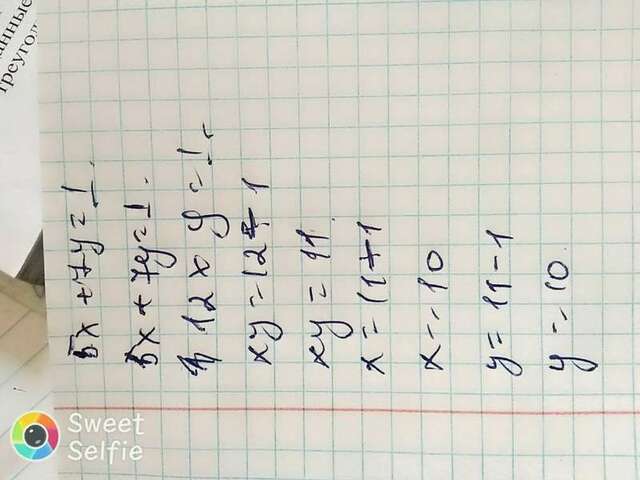 анные
треугол
5x + 7y = 1.
5x + 7y = 1.
12xy = 1.
xy = 12 - 1
xy = 11.
x = 11 - 1
x = 10
y = 11 - 1
y = 10.
Sweet
Selfie